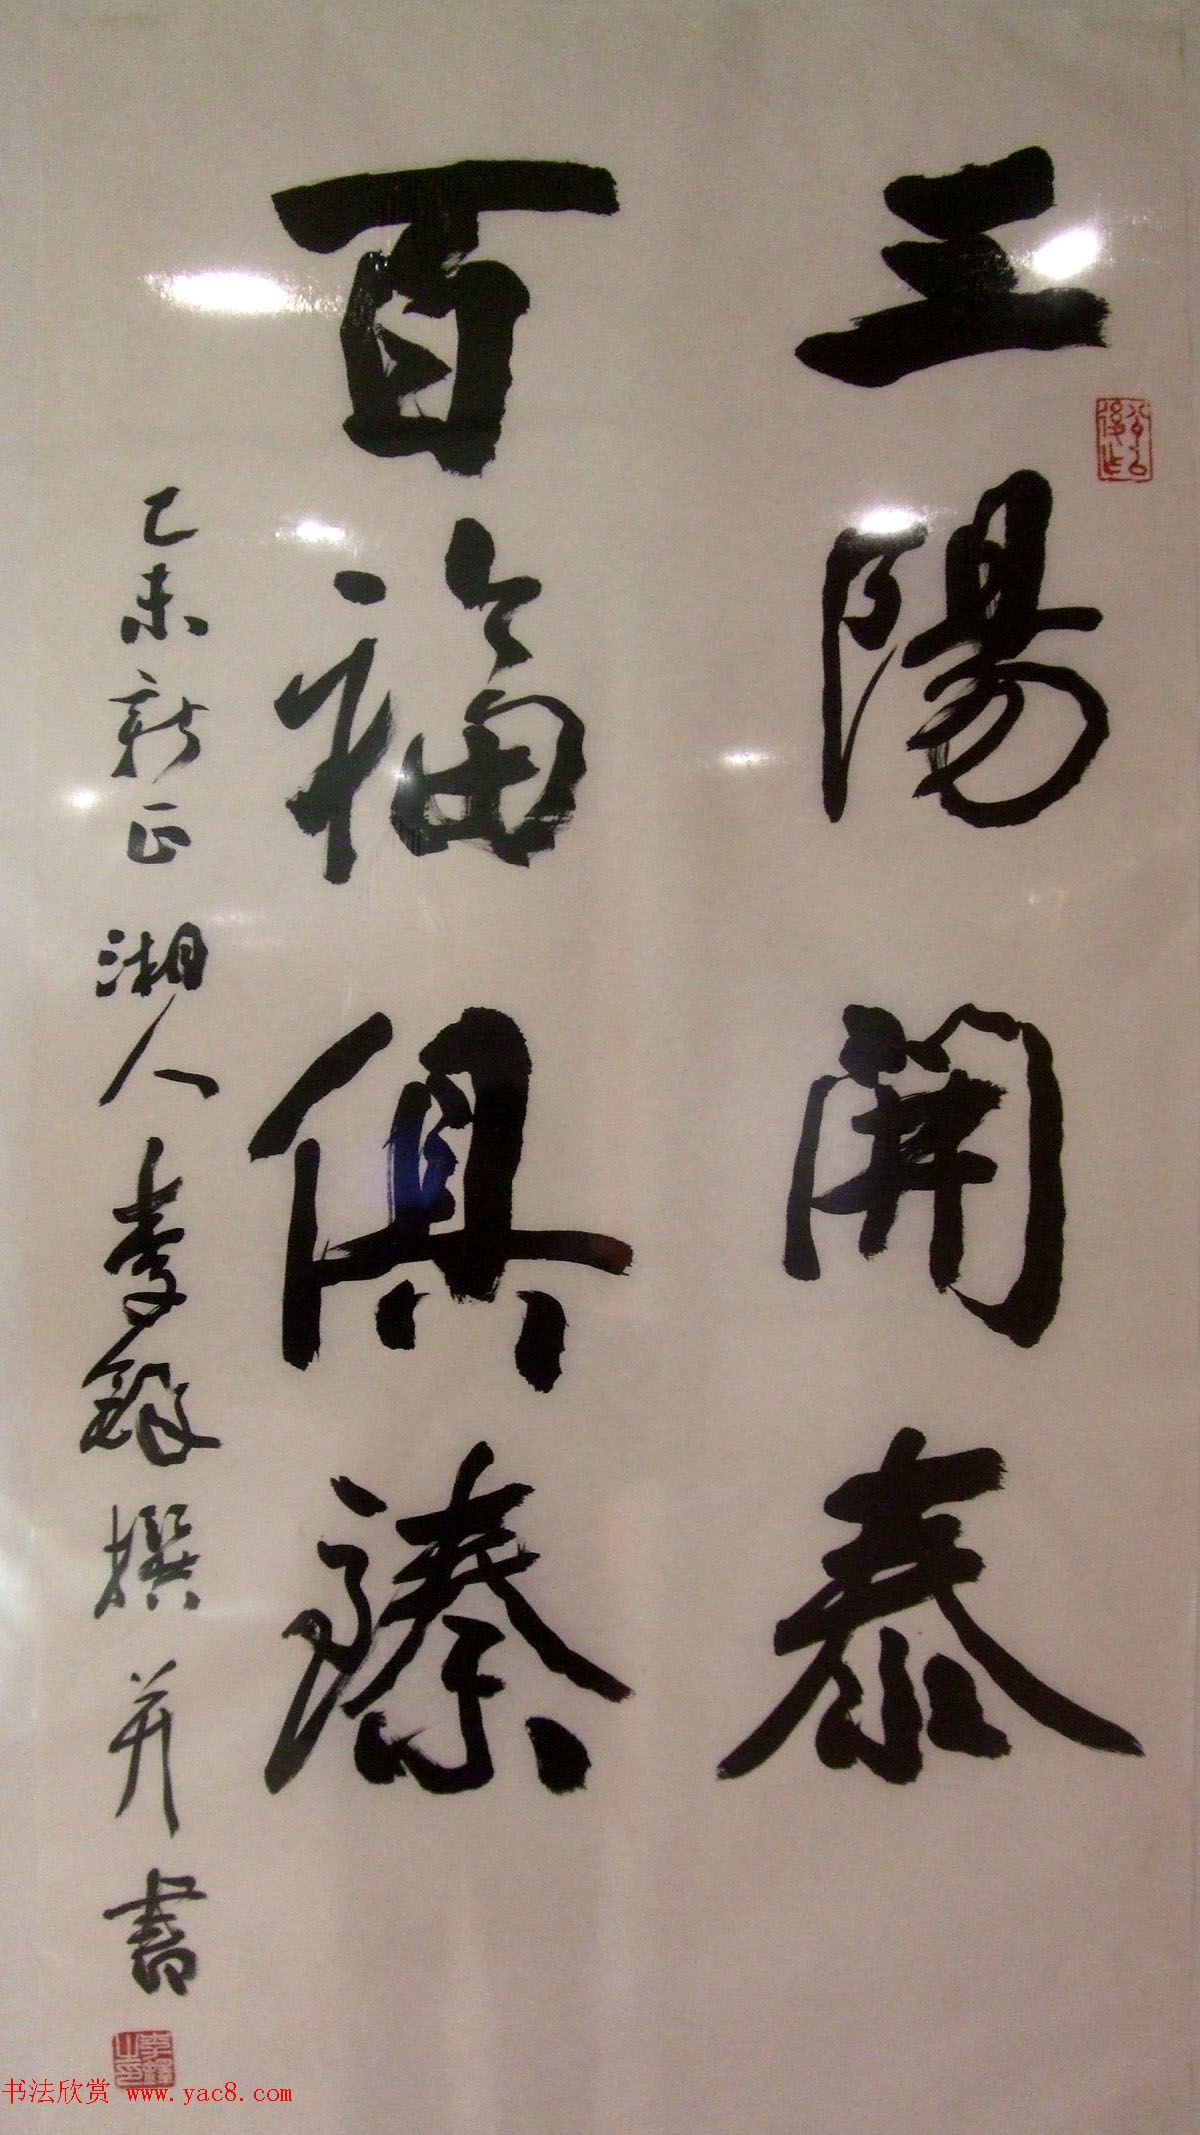 三陽開泰
百福俱臻
乙未新正湘人李鐸撰并書
李鐸之印
书法欣赏 www.yac8.com